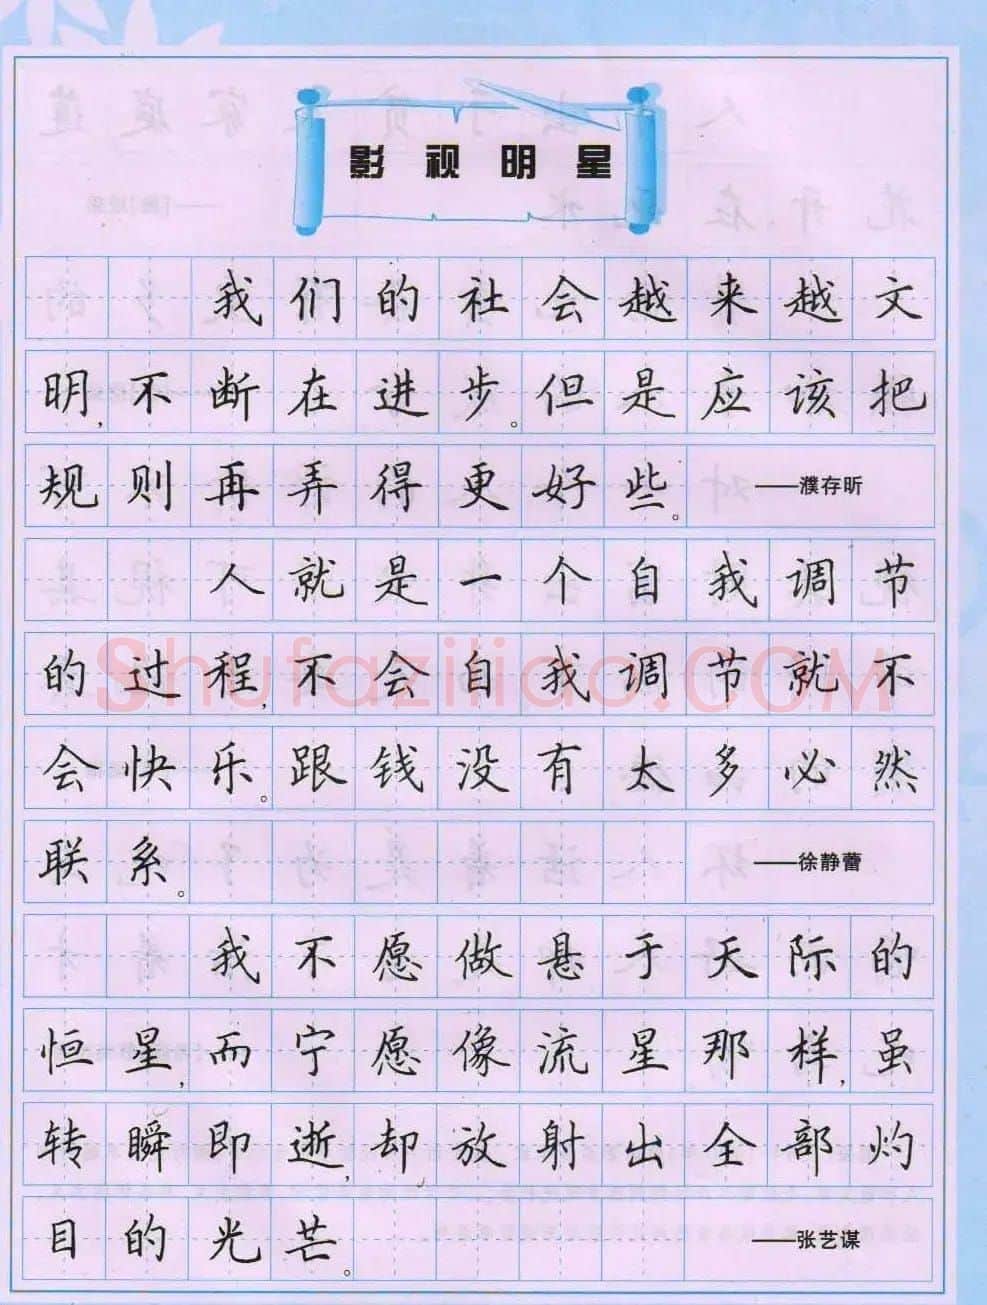 影视明星
我们的社会越来越文
明,不断在进步。但是应该把
规则再弄得更好些。——濮存昕
人就是一个自我调节
的过程,不会自我调节就不
会快乐。跟钱没有太多必然
联系。——徐静蕾
我不愿做悬于天际的
恒星,而宁愿像流星那样,虽
转瞬即逝,却放射出全部灼
目的光芒。——张艺谋
Shufaziliao.COM